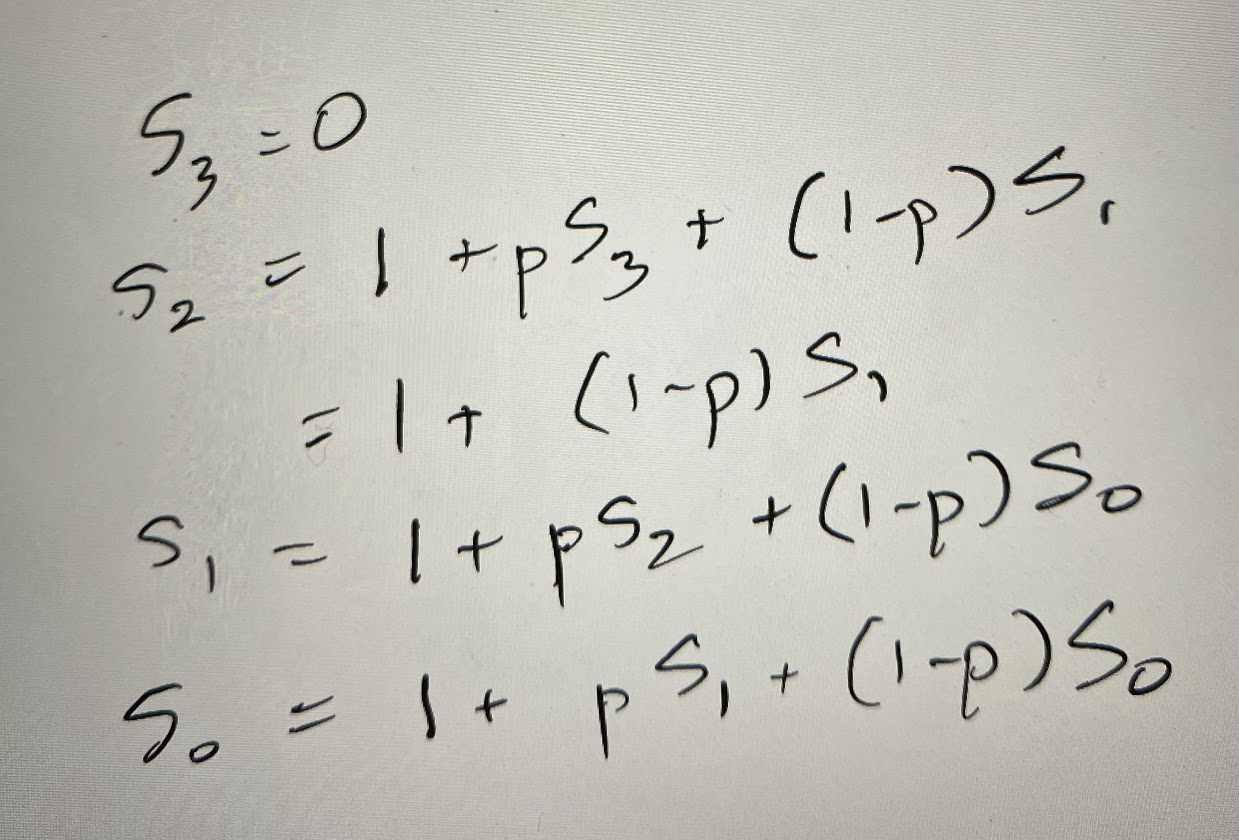 S₃ = 0
S₂ = 1 + pS₃ + (1-p)S₁
= 1 + (1-p)S₁
S₁ = 1 + pS₂ + (1-p)S₀
S₀ = 1 + pS₁ + (1-p)S₀